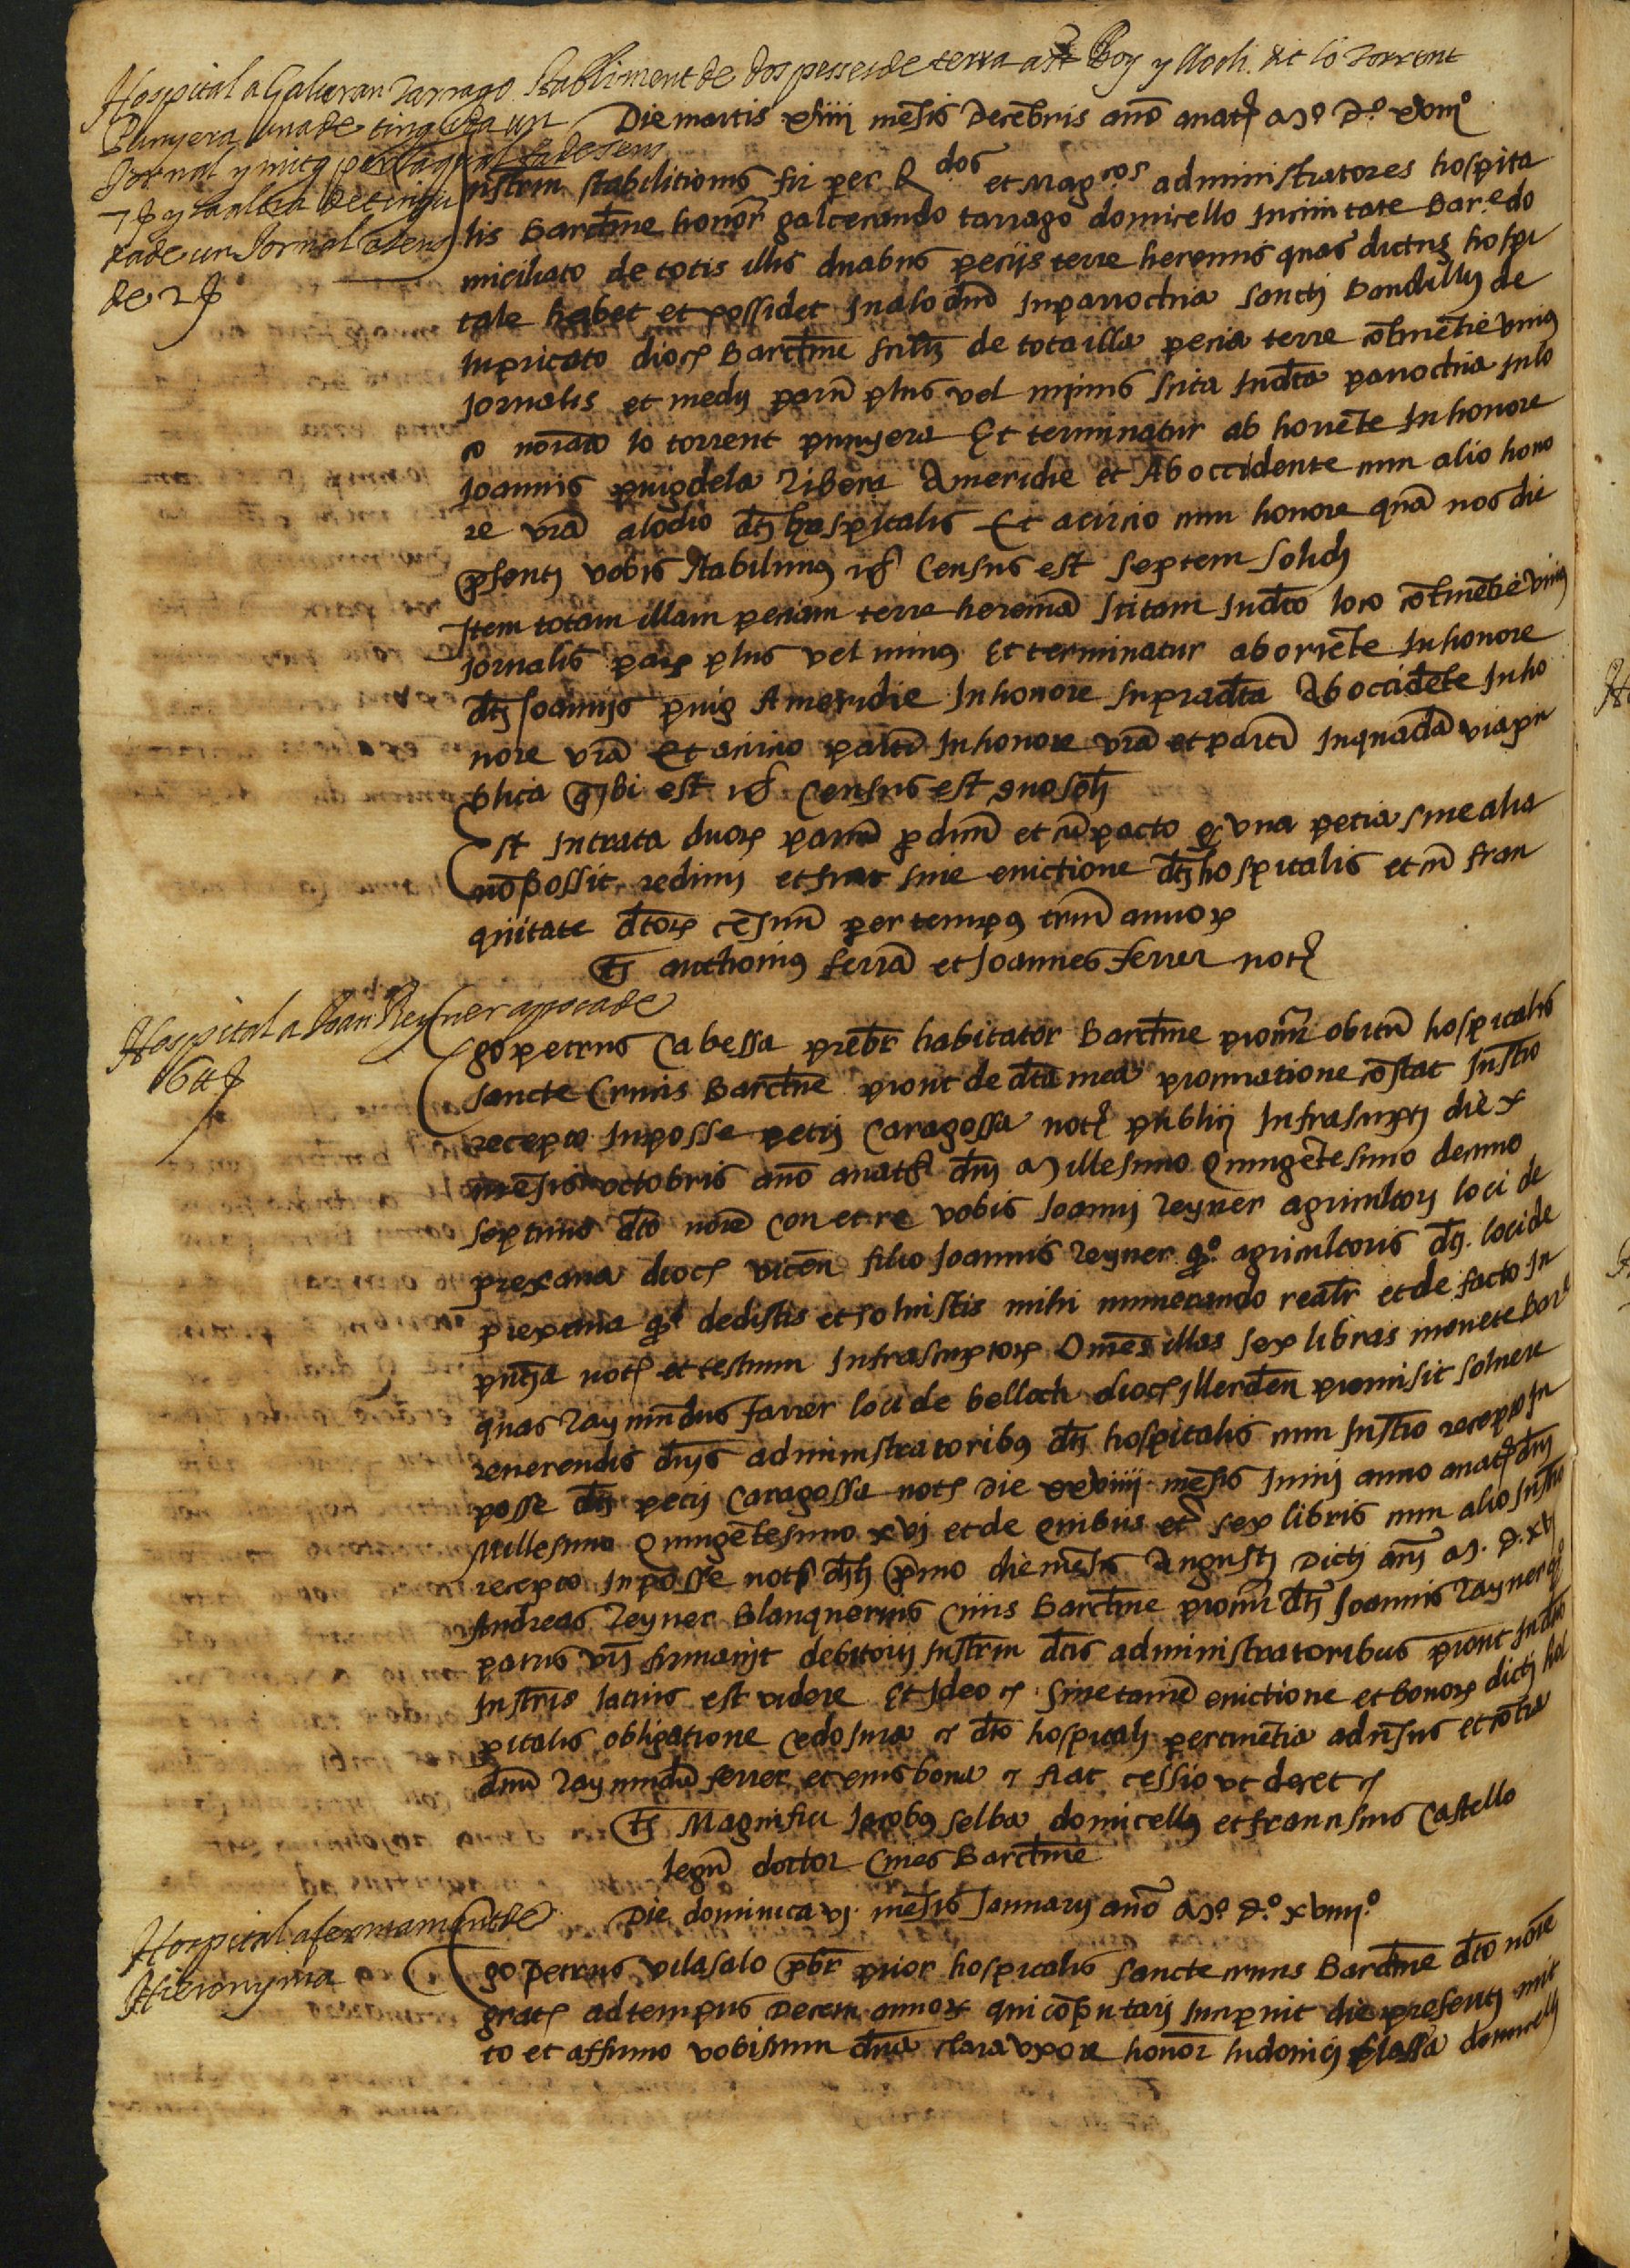 Hospital a Galceran Tarrago Stabliment de dos pesses de terra a st Boy y lloch dit lo Torrent
Punyera una de tinguda un
Jornal y mitg per la qual fa de sens
7 s y la altra de tingu
tada de un Jornal a sens
de 2 s
Die martis xviiii mesis Decebris ano anatz Mo Do xvom
Instrm stabilitionis fir per Rdos et Magcos administratores hospita
lis Barctme honor galcerando tarrago domicello In civitate Bar. do
miciliato de totis illis duabus pecijs terre heremis quas dictus hospi
tale habet et possidet In alodio In parrochia Sanctj Baudillij de
lupricato dioc Barctme scilz de tota illa pecia terre cotinetie unius
Jornalis et medij parum plus vel minus sita In dta parrochia In lo
co noiato lo torrent punyera Et terminatur ab horiete In honore
Joannis puig dela ribera A meridie et Ab occidente cum alio hono
re vra alodio dtj hospitalis Et a circio cum honore qua nos die
psentj vobis stabilimus id Census est septem solidj
Item totam illam peciam terre herema sitam In dto loco cotinetie unius
Jornalis paru plus vel minus Et terminatur ab oriete In honore
dtj Joannijs puig A meridie In honore supradta Ab occidete In ho
nore vra Et a circio parti In honore vra et parti In quada via pu
blica q Ibi est id Census est duo solj
Est Intrata duor parium pdinu et cu pacto q una petia sine alia
no possit redimi et fiat sine evictione dtj hospitalis et cu fran
quitate dtor cesuum per tempus trium annor
Ts anthonius ferra et Joannes ferrer notz
Hospital a Joan Reyner apoca de
6 ll s
Ego petrus Cabessa prebr habitator Barctme procur obituu hospitalis
Sancte Crucis Barctme prout de dta mea procuratione costat Instro
recepto In posse petri Caragossa notz publicj Infrascriptj die x
mesis octobris ano anatz dnj Millesimo Quingetesimo decimo
septimo dto noie Con et re vobis Joannj reyner agricultorj loci de
prexana dioc vicen filio Joannis reyner qo agricultoris dtj loci de
prexana qd dedistis et solvistis mihi numerando realr et de facto In
pntia notz et testium Infrascriptor Omes illas sex libras monete Bar
quas raymundus farrer loci de belloch dioc Illerden promisit solvere
reverendis dnis administratoribus dtj hospitalis cum Instro recepto In
posse dtj petri Caragossa notz Die xxviiii mesis Junij anno anatz dnj
Millesimo Quingetesimo xvj et de quibus et sex libris cum alio Instro
recepto In posse notz dtj primo die mesis Augustj Dictj anj M. D. xvj
Andreas reyner Blanquerius Civis Barctme procur dtj Joannis rayner qo
patris vrj firmavit debitorij Instrm dtis administratoribus prout In dto
Instro lacius est videre Et Ideo rc Sine tame evictione et bonor dictj hos
pitalis obligatione Cedo Iura rc dto hospitalj pertinetia adversus et cotra
dnu raymundu ferrer et eius bona rc fiat cessio ut deret rc
Ts Magnifici Jacobus selba domicellus et francisus Castello
legu doctor Cives Barctme
Die dominica vj mesis Januarij ano Mo Do xviiijo
Hospital a fermament de
Hieronyma
Ego Petrus vilasalo pbr prior hospitalis Sancte crucis Barctme dto noie
gratz ad tempus Decem annor qui coputarj Incipiut die presentj mit
to et affirmo vobiscum dna Clara uxore honor ludovicj plassa domicellj